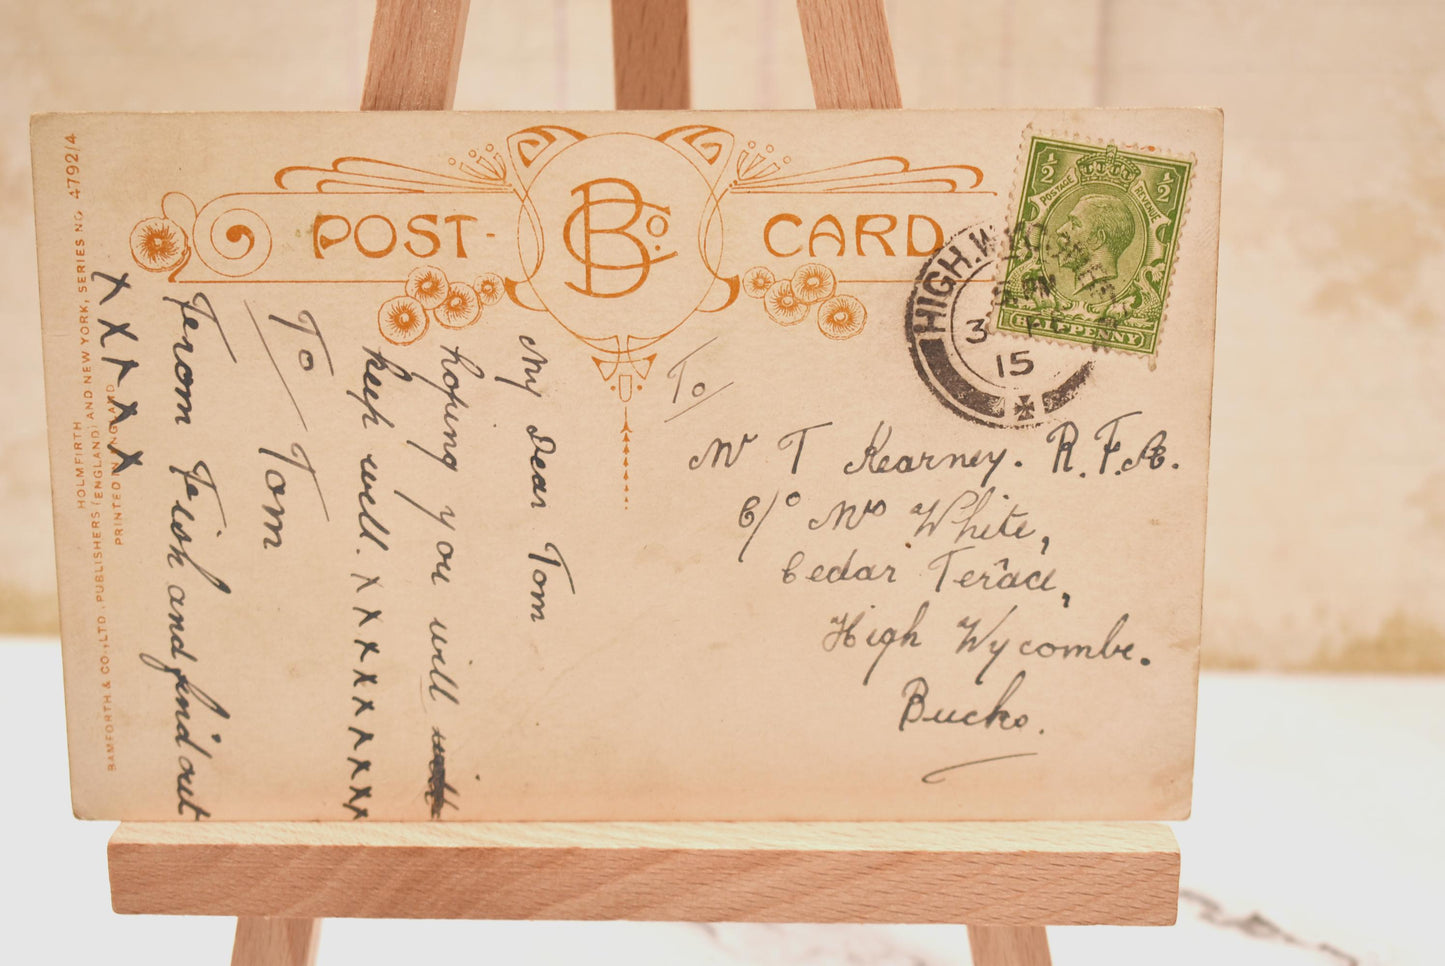 POST-
BCo.
CARD
½
½
POSTAGE
REVENUE
HALFPENNY
HIGH.W
PM
3
15
To
Mr T Kearney. R.F.A.
C/o Mrs White,
Cedar Terace,
High Wycombe.
Bucks.
My Dear Tom
hoping you will
keep well. x x x x x x x x
To Tom
From Trish and find out
x x x x x
HOLMFIRTH
BAMFORTH & CO., LTD., PUBLISHERS (ENGLAND) AND NEW YORK, SERIES NO 4792/4
PRINTED IN ENGLAND